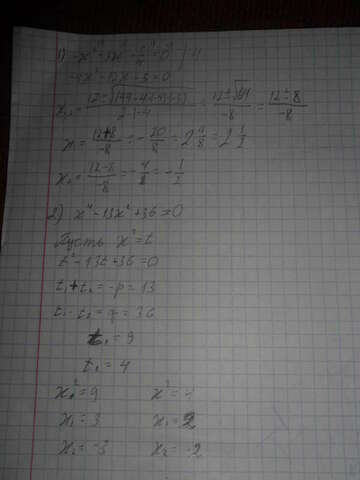 1) -x² - 3x - 5/4 = 0 | ·4
-4x² - 12x - 5 = 0
x₁,₂ = (12 ± √(144 - 4·(-4)·(-5))) / (2·(-4)) = (12 ± √64) / -8 = (12 ± 8) / -8
x₁ = (12+8) / -8 = - 20/8 = 2 4/8 = 2 1/2
x₂ = (12-8) / -8 = - 4/8 = - 1/2
2) x⁴ - 13x² + 36 = 0
Пусть x² = t
t² - 13t + 36 = 0
t₁ + t₂ = -p = 13
t₁ · t₂ = q = 36
t₁ = 9
t₂ = 4
x² = 9 x² = 4
x₁ = 3 x₁ = 2
x₂ = -3 x₂ = -2